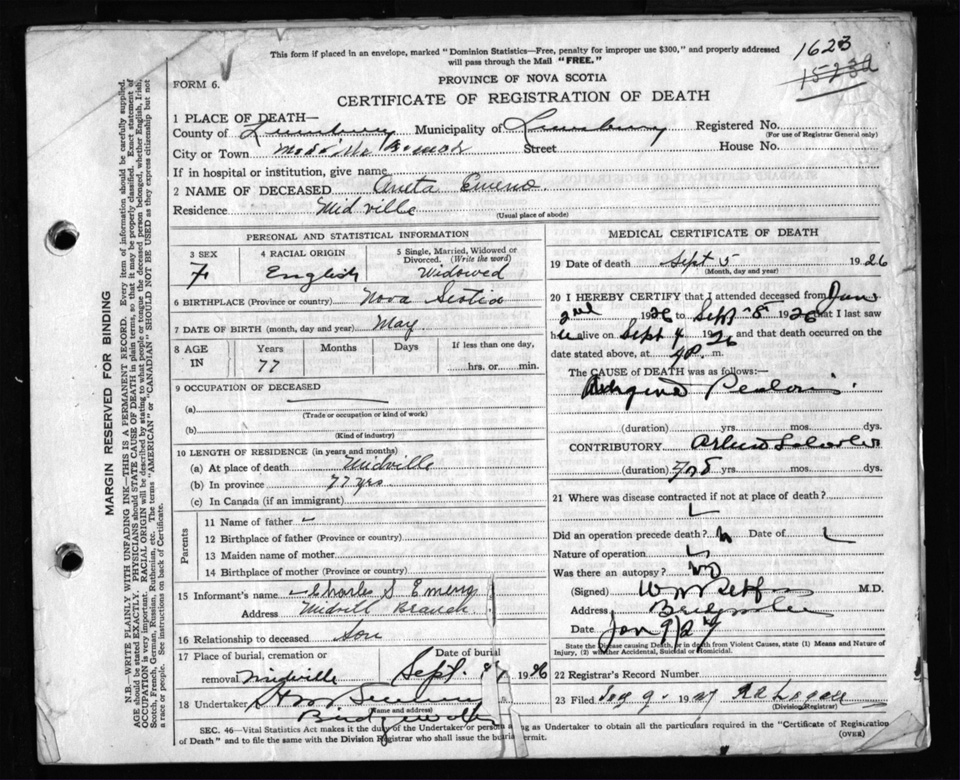 This form if placed in an envelope, marked "Dominion Statistics—Free, penalty for improper use $300," and properly addressed
will pass through the Mail "FREE."
1623
15230
FORM 6.
PROVINCE OF NOVA SCOTIA
CERTIFICATE OF REGISTRATION OF DEATH
1 PLACE OF DEATH—
County of Lunenburg Municipality of Lunenburg Registered No.
(For use of Registrar General only)
City or Town Midville Branch Street House No.
If in hospital or institution, give name
2 NAME OF DECEASED
Residence Midville
(Usual place of abode)
PERSONAL AND STATISTICAL INFORMATION
3 SEX F
4 RACIAL ORIGIN English
5 Single, Married, Widowed or Divorced. (Write the word) Widowed
6 BIRTHPLACE (Province or country) Nova Scotia
7 DATE OF BIRTH (month, day and year) May
8 AGE IN Years 77 Months Days If less than one day, hrs. or min.
9 OCCUPATION OF DECEASED
(a)
(Trade or occupation or kind of work)
(b)
(Kind of industry)
10 LENGTH OF RESIDENCE (in years and months)
(a) At place of death Midville
(b) In province 77 yrs
(c) In Canada (if an immigrant)
Parents
11 Name of father
12 Birthplace of father (Province or country)
13 Maiden name of mother
14 Birthplace of mother (Province or country)
15 Informant's name Charles S
Address Midvill Branch
16 Relationship to deceased Son
17 Place of burial, cremation or removal Midville Date of burial Sept. 1926
18 Undertaker
(Name and address)
MEDICAL CERTIFICATE OF DEATH
19 Date of death Sept 5 1926
(Month, day and year)
20 I HEREBY CERTIFY that I attended deceased from
2nd 1926 to Sept 5 1926 that I last saw
her alive on Sept 4 1926 and that death occurred on the
date stated above, at m.
The CAUSE of DEATH was as follows:—
Angina Pectoris
(duration) yrs. mos. dys.
CONTRIBUTORY
(duration) yrs. mos. dys.
21 Where was disease contracted if not at place of death?
Did an operation precede death? Date of
Nature of operation
Was there an autopsy? no
(Signed) M.D.
Address Bridgewater
Date Jan 9/27
State the Disease causing Death, or in death from Violent Causes, state (1) Means and Nature of
Injury, (2) whether Accidental, Suicidal or Homicidal.
22 Registrar's Record Number
23 Filed 9 1927
(Division Registrar)
SEC. 46—Vital Statistics Act makes it the duty of the Undertaker or person acting as Undertaker to obtain all the particulars required in the "Certificate of Registration
of Death" and to file the same with the Division Registrar who shall issue the burial permit. (OVER)
MARGIN RESERVED FOR BINDING
N.B.—WRITE PLAINLY WITH UNFADING INK—THIS IS A PERMANENT RECORD. Every item of information should be carefully supplied.
AGE should be stated EXACTLY. PHYSICIANS should STATE CAUSE OF DEATH in plain terms, so that it may be properly classified. Exact statement of
OCCUPATION is very important. RACIAL ORIGIN will be described by stating to what people or tongue the deceased person belonged, whether English, Irish,
Scotch, French, German, Russian, Ruthenian, etc. The terms "AMERICAN" or "CANADIAN" SHOULD NOT BE USED as they express citizenship but not
a race or people. See instructions on back of Certificate.